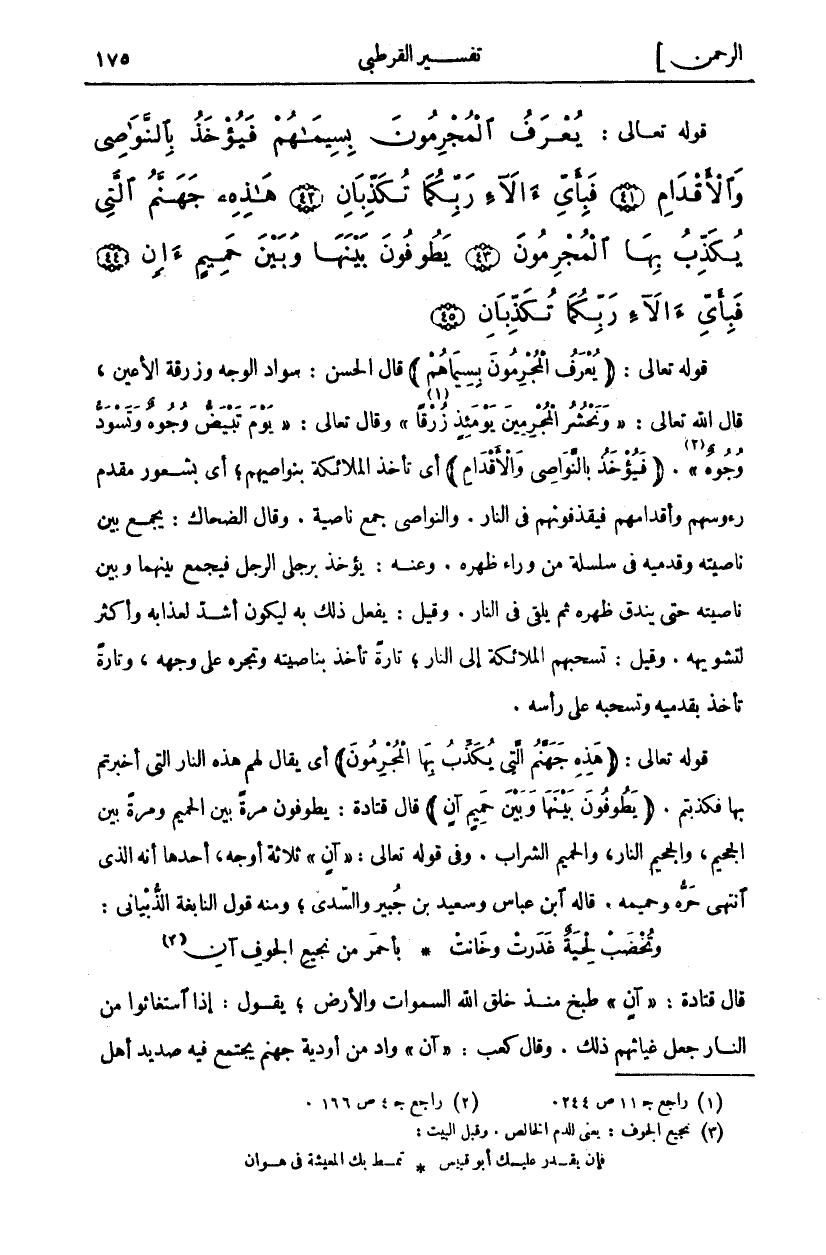 الرحمن ] تفسير القرطبى ١٧٥
قوله تعالى : يُعْرَفُ ٱلْمُجْرِمُونَ بِسِيمَٰهُمْ فَيُؤْخَذُ بِٱلنَّوَٰصِى
وَٱلْأَقْدَامِ ﴿٤١﴾ فَبِأَىِّ ءَالَآءِ رَبِّكُمَا تُكَذِّبَانِ ﴿٤٢﴾ هَٰذِهِۦ جَهَنَّمُ ٱلَّتِى
يُكَذِّبُ بِهَا ٱلْمُجْرِمُونَ ﴿٤٣﴾ يَطُوفُونَ بَيْنَهَا وَبَيْنَ حَمِيمٍ ءَانٍ ﴿٤٤﴾
فَبِأَىِّ ءَالَآءِ رَبِّكُمَا تُكَذِّبَانِ ﴿٤٥﴾
قوله تعالى : ﴿ يُعْرَفُ الْمُجْرِمُونَ بِسِيمَاهُمْ ﴾ قال الحسن : سواد الوجه وزرقة الأعين ،
قال الله تعالى : « وَنَحْشُرُ الْمُجْرِمِينَ يَوْمَئِذٍ زُرْقًا »(١) وقال تعالى : « يَوْمَ تَبْيَضُّ وُجُوهٌ وَتَسْوَدُّ
وُجُوهٌ »(٢) . ﴿ فَيُؤْخَذُ بِالنَّوَاصِى وَالْأَقْدَامِ ﴾ أى تأخذ الملائكة بنواصيهم؛ أى بشعور مقدم
رءوسهم وأقدامهم فيقذفونهم فى النار . والنواصى جمع ناصية . وقال الضحاك : يجمع بين
ناصيته وقدميه فى سلسلة من وراء ظهره . وعنه : يؤخذ برجلى الرجل فيجمع بينهما وبين
ناصيته حتى يندق ظهره ثم يلقى فى النار . وقيل : يفعل ذلك به ليكون أشدّ لعذابه وأكثر
لتشويهه . وقيل : تسحبهم الملائكة إلى النار ؛ تارةً تأخذ بناصيته وتجره على وجهه ، وتارةً
تأخذ بقدميه وتسحبه على رأسه .
قوله تعالى : ﴿ هَذِهِ جَهَنَّمُ الَّتِى يُكَذِّبُ بِهَا الْمُجْرِمُونَ﴾ أى يقال لهم هذه النار التى أخبرتم
بها فكذبتم . ﴿ يَطُوفُونَ بَيْنَهَا وَبَيْنَ حَمِيمٍ آنٍ ﴾ قال قتادة : يطوفون مرةً بين الحميم ومرةً بين
الجحيم، والجحيم النار، والحميم الشراب . وفى قوله تعالى : « آنٍ » ثلاثة أوجه، أحدها أنه الذى
ٱنتهى حَرُّه وحميمه . قاله ٱبن عباس وسعيد بن جُبير والسّدى ؛ ومنه قول النابغة الذُّبْيانى :
وتُخْضَبْ لِحْيَةٌ غَدَرتْ وخَانتْ * بأحمرَ من نجيعِ الجوفِ آنِ(٣)
قال قتادة : « آنٍ » طبخ منذ خلق الله السموات والأرض ؛ يقول : إذا ٱستغاثوا من
النار جعل غياثهم ذلك . وقال كعب : « آن » واد من أودية جهنم يجتمع فيه صديد أهل
(١) راجع جـ ١١ ص ٢٤٤ . (٢) راجع جـ ٤ ص ١٦٦ .
(٣) نجيع الجوف : يعنى الدم الخالص . وقبل البيت :
فإن يقدر عليك أبو قبيس * تمط بك المعيشة فى هوان